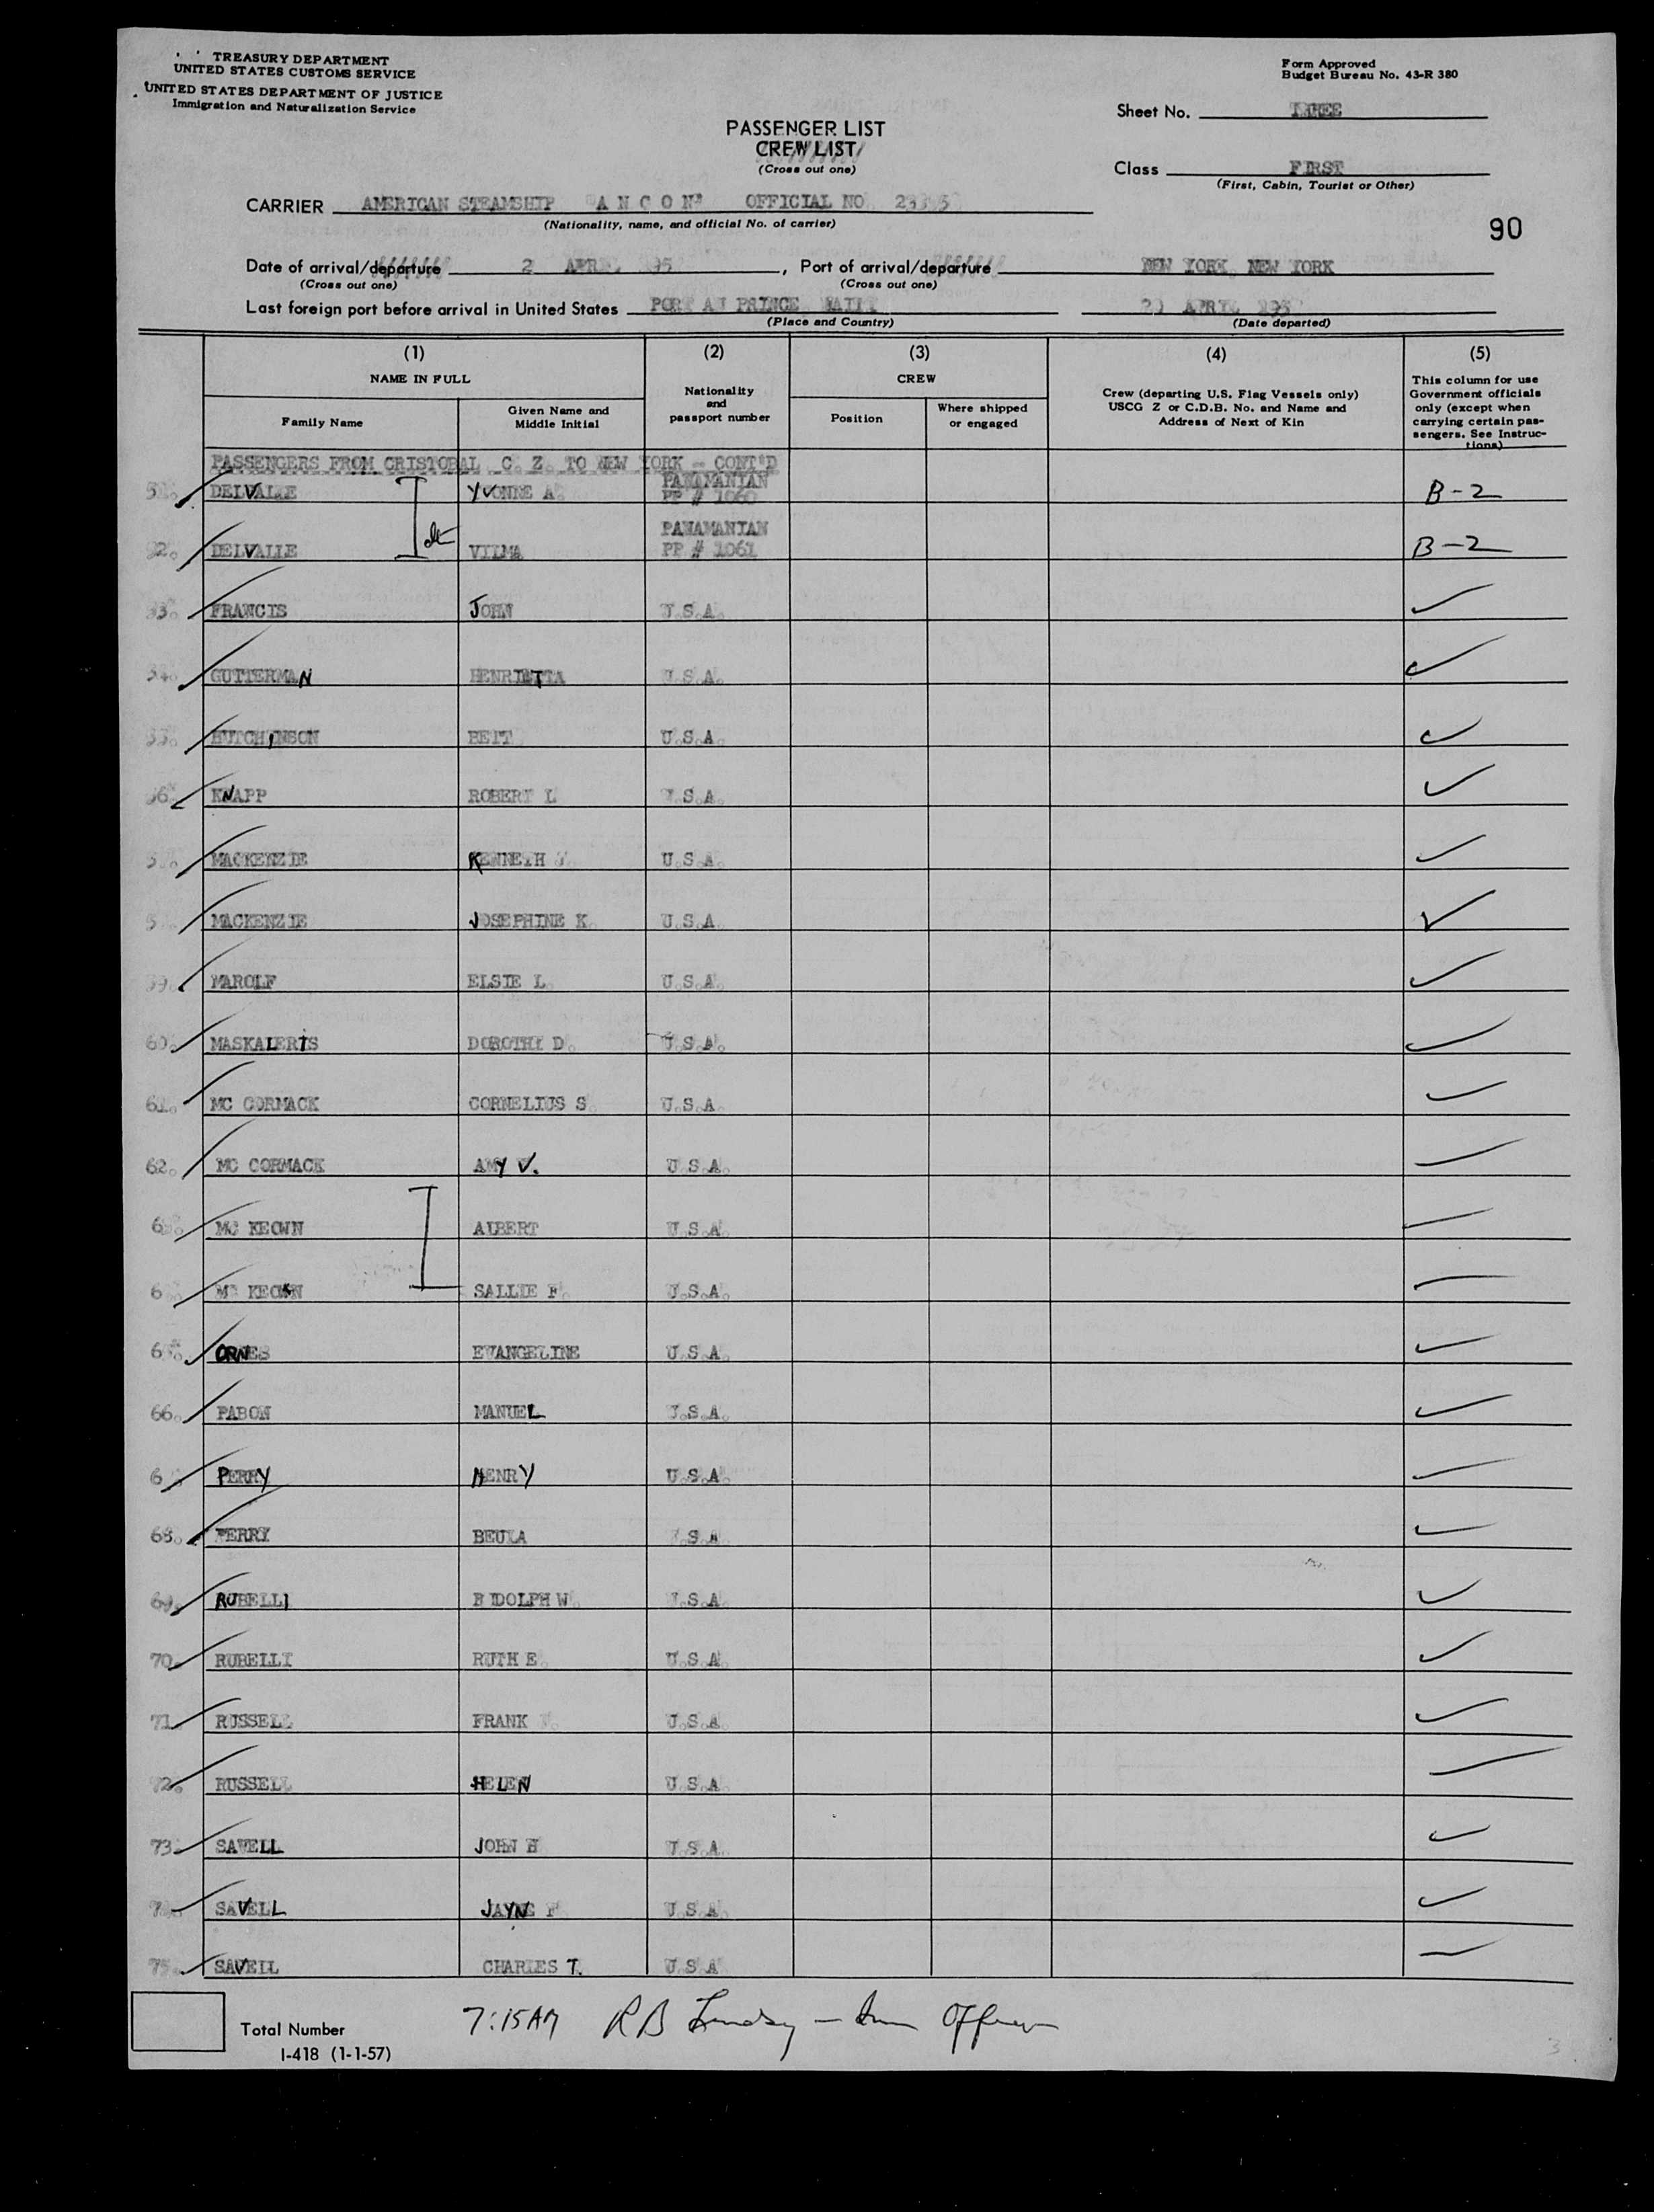 TREASURY DEPARTMENT
UNITED STATES CUSTOMS SERVICE
UNITED STATES DEPARTMENT OF JUSTICE
Immigration and Naturalization Service
Form Approved
Budget Bureau No. 43-R 380
Sheet No. THREE
PASSENGER LIST
CREW LIST
(Cross out one)
Class FIRST
(First, Cabin, Tourist or Other)
CARRIER AMERICAN STEAMSHIP "A N C O N" OFFICIAL NO
(Nationality, name, and official No. of carrier)
90
Date of arrival/departure APRIL , Port of arrival/departure NEW YORK, NEW YORK
(Cross out one) (Cross out one)
Last foreign port before arrival in United States PORT AU PRINCE HAITI APRIL
(Place and Country) (Date departed)
(1) (2) (3) (4) (5)
NAME IN FULL
Family Name
Given Name and Middle Initial
Nationality and passport number
CREW
Position
Where shipped or engaged
Crew (departing U.S. Flag Vessels only) USCG Z or C.D.B. No. and Name and Address of Next of Kin
This column for use Government officials only (except when carrying certain passengers. See Instructions)
PASSENGERS FROM CRISTOBAL, C. Z. TO NEW YORK - CONT'D
DELVALLE YVONNE A. PANAMANIAN PP # 1060 B-2
DELVALLE VILMA PANAMANIAN PP # 1061 B-2
53. FRANCIS JOHN U.S.A.
54. GUTTERMAN HENRIETTA U.S.A.
55. HUTCHINSON U.S.A.
56. KNAPP ROBERT L. U.S.A.
MACKENZIE KENNETH U.S.A.
MACKENZIE JOSEPHINE K. U.S.A.
59. MAROLF ELSIE L. U.S.A.
60. MASKALERIS DOROTHY D. U.S.A.
61. MC CORMACK CORNELIUS S. U.S.A.
62. MC CORMACK AMY V. U.S.A.
MC KEOWN ALBERT U.S.A.
MC KEOWN SALLIE F. U.S.A.
ORNES EVANGELINE U.S.A.
66. PABON MANUEL U.S.A.
PERRY HENRY U.S.A.
68. PERRY BEULA U.S.A.
69. RUBELLI RUDOLPH W. U.S.A.
70. RUBELLI RUTH E. U.S.A.
71. RUSSELL FRANK U.S.A.
72. RUSSELL HELEN U.S.A.
73. SAVELL JOHN H. U.S.A.
SAVELL JAYNE F. U.S.A.
75. SAVELL CHARLES T. U.S.A.
Total Number
7:15AM RB Lindsay - Imm Officer
I-418 (1-1-57)
3